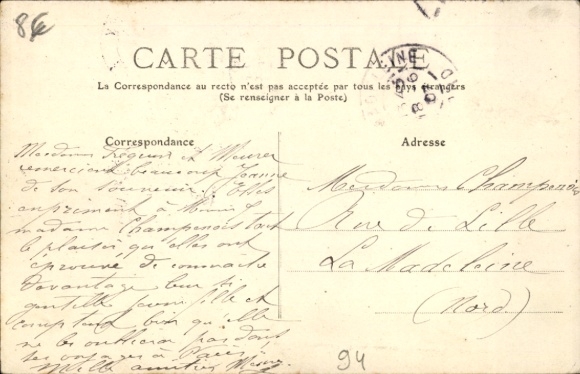 86
CARTE POSTALE
La Correspondance au recto n'est pas acceptée par tous les pays étrangers
(Se renseigner à la Poste)
Correspondance
Adresse
Mesdames et Meurer
remercient beaucoup Jeanne
de son souvenir. Elles
expriment à
madame Champenois tout
le plaisir qu'elles ont
éprouvé de connaître
davantage leur si
gentille jeune fille et
comptent bien qu'elle
ne les oubliera pas dans
ses voyages à Paris
Mille amitiés
Madame Champenois
Rue de Lille
La Madeleine
(Nord)
94